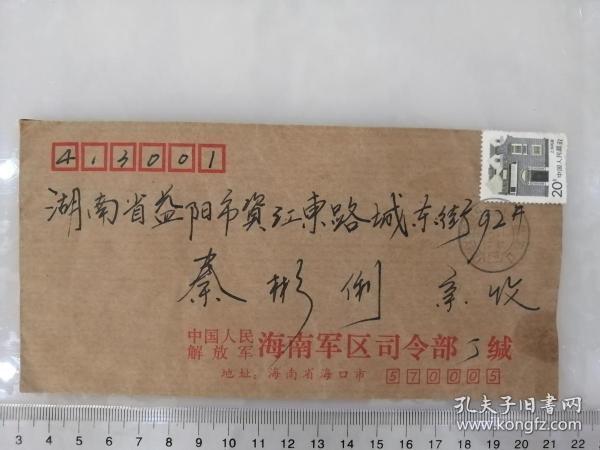 413001
20分 中国人民邮政
湖南省益阳市資江東路城东街92#
秦彬俐 亲收
中国人民
解放军 海南军区司令部 缄
地址：海南省海口市 570005
3 4 5 6 7 8 9 10 11 12 13 14 15 16 17 18 19 20 21 22
孔夫子旧书网
www.kongfz.com